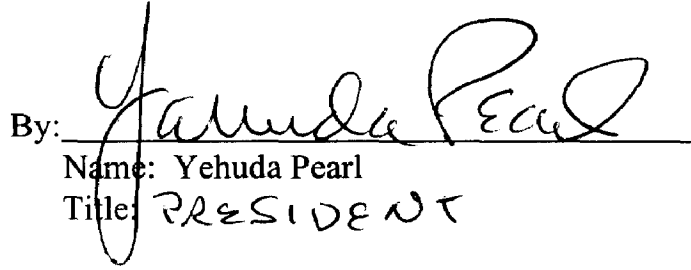 By: Yehuda Pearl
Name: Yehuda Pearl
Title: PRESIDENT